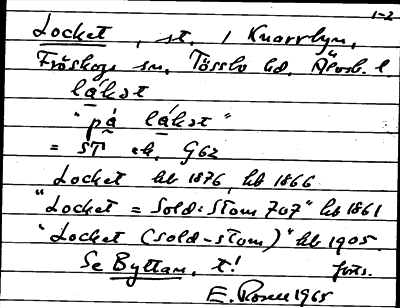 1-2
Locket, st, i Knarrbyn,
Fröskogs sn, Tössbo hd, Älvsb. l
låkət
"på låkət"
= ST ek. 962
Locket hb 1876, hb 1866
"Locket = Sold: Stom 707" hb 1861
"Locket (Sold-Stom)" hb 1905.
Se Byttan, t!
forts.
E. Rosell 1965